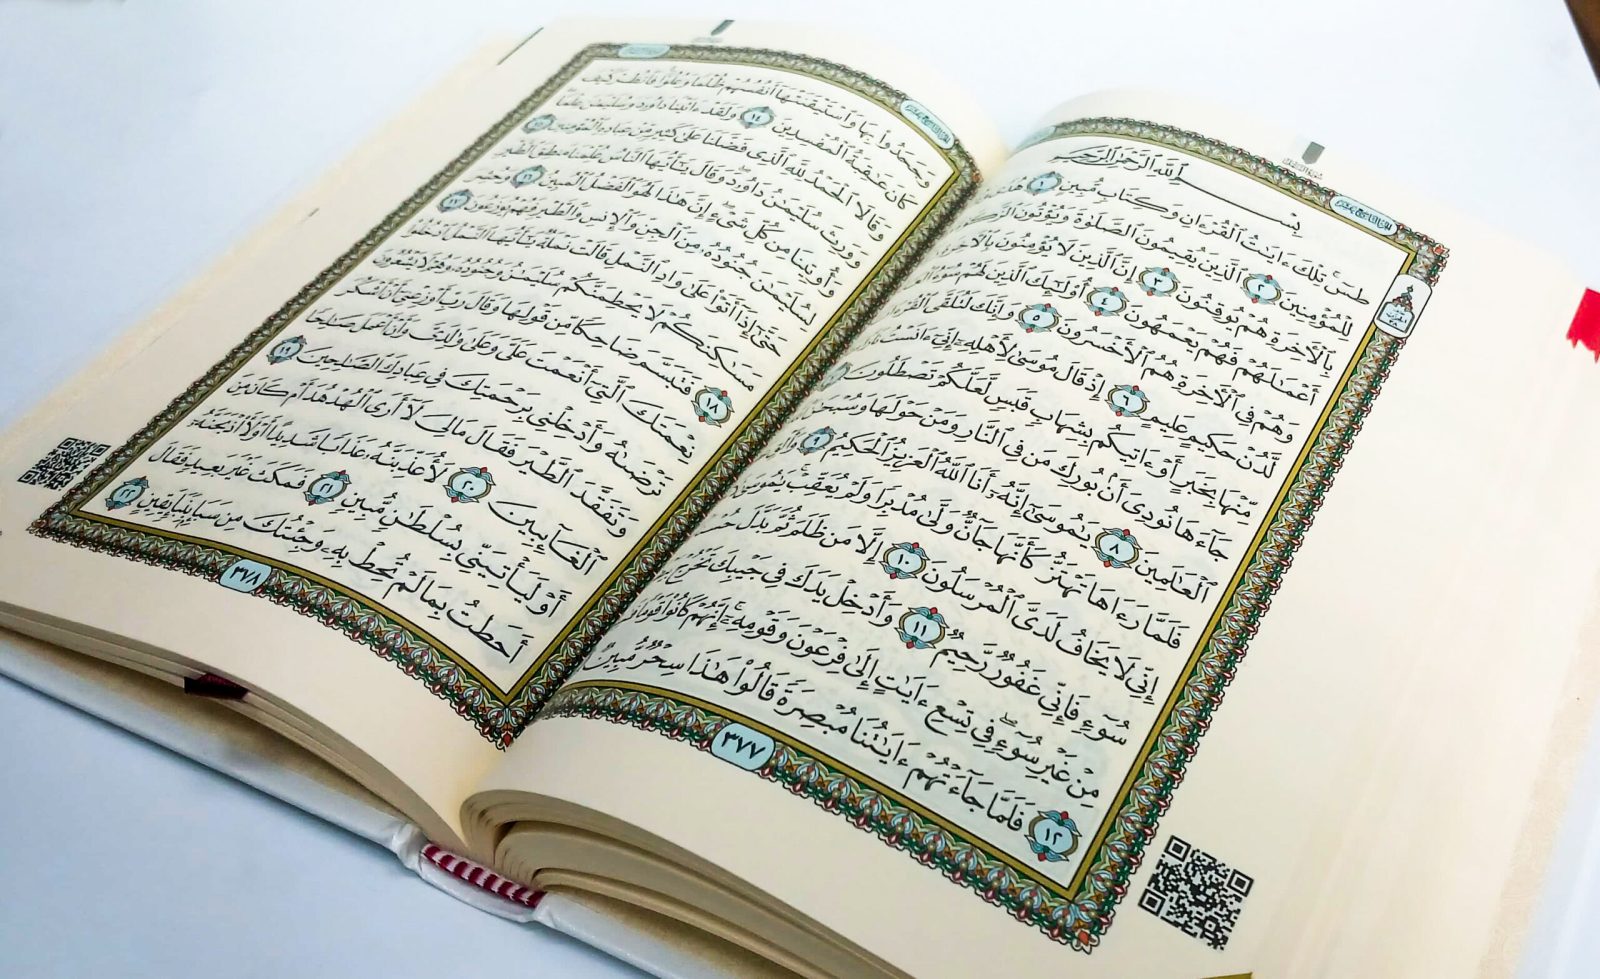 بِسْمِ ٱللَّهِ ٱلرَّحْمَٰنِ ٱلرَّحِيمِ
طسٓ ۚ تِلْكَ ءَايَٰتُ ٱلْقُرْءَانِ وَكِتَابٍ مُّبِينٍ ١
لِلْمُؤْمِنِينَ ٢ ٱلَّذِينَ يُقِيمُونَ ٱلصَّلَوٰةَ وَيُؤْتُونَ
بِٱلْءَاخِرَةِ هُمْ يُوقِنُونَ ٣ إِنَّ ٱلَّذِينَ لَا يُؤْمِنُونَ بِٱلْءَاخِرَةِ
أَعْمَٰلَهُمْ فَهُمْ يَعْمَهُونَ ٤ أُو۟لَٰٓئِكَ ٱلَّذِينَ لَهُمْ سُوٓءُ
وَهُمْ فِى ٱلْءَاخِرَةِ هُمُ ٱلْأَخْسَرُونَ ٥ وَإِنَّكَ لَتُلَقَّى
لَّدُنْ حَكِيمٍ عَلِيمٍ ٦ إِذْ قَالَ مُوسَىٰ لِأَهْلِهِۦٓ إِنِّىٓ ءَانَسْتُ
مِّنْهَا بِخَبَرٍ أَوْ ءَاتِيكُم بِشِهَابٍ قَبَسٍ لَّعَلَّكُمْ تَصْطَلُونَ
جَآءَهَا نُودِىَ أَنۢ بُورِكَ مَن فِى ٱلنَّارِ وَمَنْ حَوْلَهَا
ٱلْعَٰلَمِينَ ٨ يَٰمُوسَىٰٓ إِنَّهُۥٓ أَنَا ٱللَّهُ ٱلْعَزِيزُ ٱلْحَكِيمُ ٩
فَلَمَّا رَءَاهَا تَهْتَزُّ كَأَنَّهَا جَآنٌّ وَلَّىٰ مُدْبِرًا وَلَمْ يُعَقِّبْ ۚ يَٰمُوسَىٰ
إِنِّى لَا يَخَافُ لَدَىَّ ٱلْمُرْسَلُونَ ١٠ إِلَّا مَن ظَلَمَ ثُمَّ بَدَّلَ
سُوٓءٍ فَإِنِّى غَفُورٌ رَّحِيمٌ ١١ وَأَدْخِلْ يَدَكَ فِى جَيْبِكَ تَخْرُجْ
مِنْ غَيْرِ سُوٓءٍ ۖ فِى تِسْعِ ءَايَٰتٍ إِلَىٰ فِرْعَوْنَ وَقَوْمِهِۦٓ ۚ إِنَّهُمْ كَانُوا۟ قَوْمًا
١٢ فَلَمَّا جَآءَتْهُمْ ءَايَٰتُنَا مُبْصِرَةً قَالُوا۟ هَٰذَا سِحْرٌ مُّبِينٌ
٣٧٧
وَجَحَدُوا۟ بِهَا وَٱسْتَيْقَنَتْهَآ أَنفُسُهُمْ ظُلْمًا وَعُلُوًّا ۚ فَٱنظُرْ كَيْفَ
كَانَ عَٰقِبَةُ ٱلْمُفْسِدِينَ ١٤ وَلَقَدْ ءَاتَيْنَا دَاوُۥدَ وَسُلَيْمَٰنَ عِلْمًا ۖ
وَقَالَا ٱلْحَمْدُ لِلَّهِ ٱلَّذِى فَضَّلَنَا عَلَىٰ كَثِيرٍ مِّنْ عِبَادِهِ ٱلْمُؤْمِنِينَ ١٥
وَوَرِثَ سُلَيْمَٰنُ دَاوُۥدَ ۖ وَقَالَ يَٰٓأَيُّهَا ٱلنَّاسُ عُلِّمْنَا مَنطِقَ ٱلطَّيْرِ
وَأُوتِينَا مِن كُلِّ شَىْءٍ ۖ إِنَّ هَٰذَا لَهُوَ ٱلْفَضْلُ ٱلْمُبِينُ ١٦ وَحُشِرَ
لِسُلَيْمَٰنَ جُنُودُهُۥ مِنَ ٱلْجِنِّ وَٱلْإِنسِ وَٱلطَّيْرِ فَهُمْ يُوزَعُونَ ١٧
حَتَّىٰٓ إِذَآ أَتَوْا۟ عَلَىٰ وَادِ ٱلنَّمْلِ قَالَتْ نَمْلَةٌ يَٰٓأَيُّهَا ٱلنَّمْلُ ٱدْخُلُوا۟
مَسَٰكِنَكُمْ لَا يَحْطِمَنَّكُمْ سُلَيْمَٰنُ وَجُنُودُهُۥ وَهُمْ لَا يَشْعُرُونَ
١٨ فَتَبَسَّمَ ضَاحِكًا مِّن قَوْلِهَا وَقَالَ رَبِّ أَوْزِعْنِىٓ أَنْ أَشْكُرَ
نِعْمَتَكَ ٱلَّتِىٓ أَنْعَمْتَ عَلَىَّ وَعَلَىٰ وَٰلِدَىَّ وَأَنْ أَعْمَلَ صَٰلِحًا
تَرْضَىٰهُ وَأَدْخِلْنِى بِرَحْمَتِكَ فِى عِبَادِكَ ٱلصَّٰلِحِينَ ١٩
وَتَفَقَّدَ ٱلطَّيْرَ فَقَالَ مَالِىَ لَآ أَرَى ٱلْهُدْهُدَ أَمْ كَانَ مِنَ
ٱلْغَآئِبِينَ ٢٠ لَأُعَذِّبَنَّهُۥ عَذَابًا شَدِيدًا أَوْ لَأَا۟ذْبَحَنَّهُۥٓ
أَوْ لَيَأْتِيَنِّى بِسُلْطَٰنٍ مُّبِينٍ ٢١ فَمَكَثَ غَيْرَ بَعِيدٍ فَقَالَ
أَحَطتُ بِمَا لَمْ تُحِطْ بِهِۦ وَجِئْتُكَ مِن سَبَإٍۭ بِنَبَإٍ يَقِينٍ ٢٢
٣٧٨